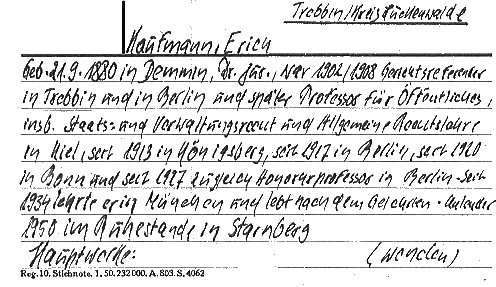 Trebbin/Kreis Luckenwalde
Kaufmann, Erich
Geb. 21.9.1880 in Demmin, Dr. jur., war 1902/1908 Gerichtsreferendar
in Trebbin und in Berlin und später Professor für Öffentliches,
insb. Staats- und Verwaltungsrecht und Allgemeine Rechtslehre
in Kiel, seit 1913 in Königsberg, seit 1917 in Berlin, seit 1920
in Bonn und seit 1927 zugleich Honorarprofessor in Berlin. Seit
1934 lehrte er in München und lebt nach dem Gelehrten-Kalender
1950 im Ruhestande in Starnberg
Hauptwerke: (wenden)
Reg. 10. Stichnote. 1. 50. 232 000. A. 803. S. 4062